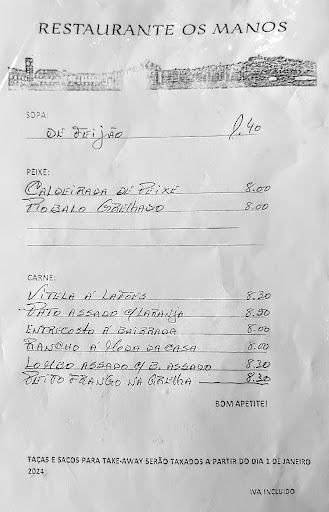 RESTAURANTE OS MANOS
SOPA:
DE FEIJÃO 1.40
PEIXE:
CALDEIRADA DE PEIXE 8.00
ROBALO GRELHADO 8.00
CARNE:
VITELA Á LAFÕES 8.20
PATO ASSADO C/LARANJA 8.50
ENTRECOSTO Á BAIRRADA 8.00
RANCHO Á MODA DA CASA 8.00
LOMBO ASSADO C/B. ASSADO 8.20
PEITO FRANGO NA GRELHA 8.30
BOM APETITE!
TAÇAS E SACOS PARA TAKE-AWAY SERÃO TAXADOS A PARTIR DO DIA 1 DE JANEIRO
2024
IVA INCLUIDO